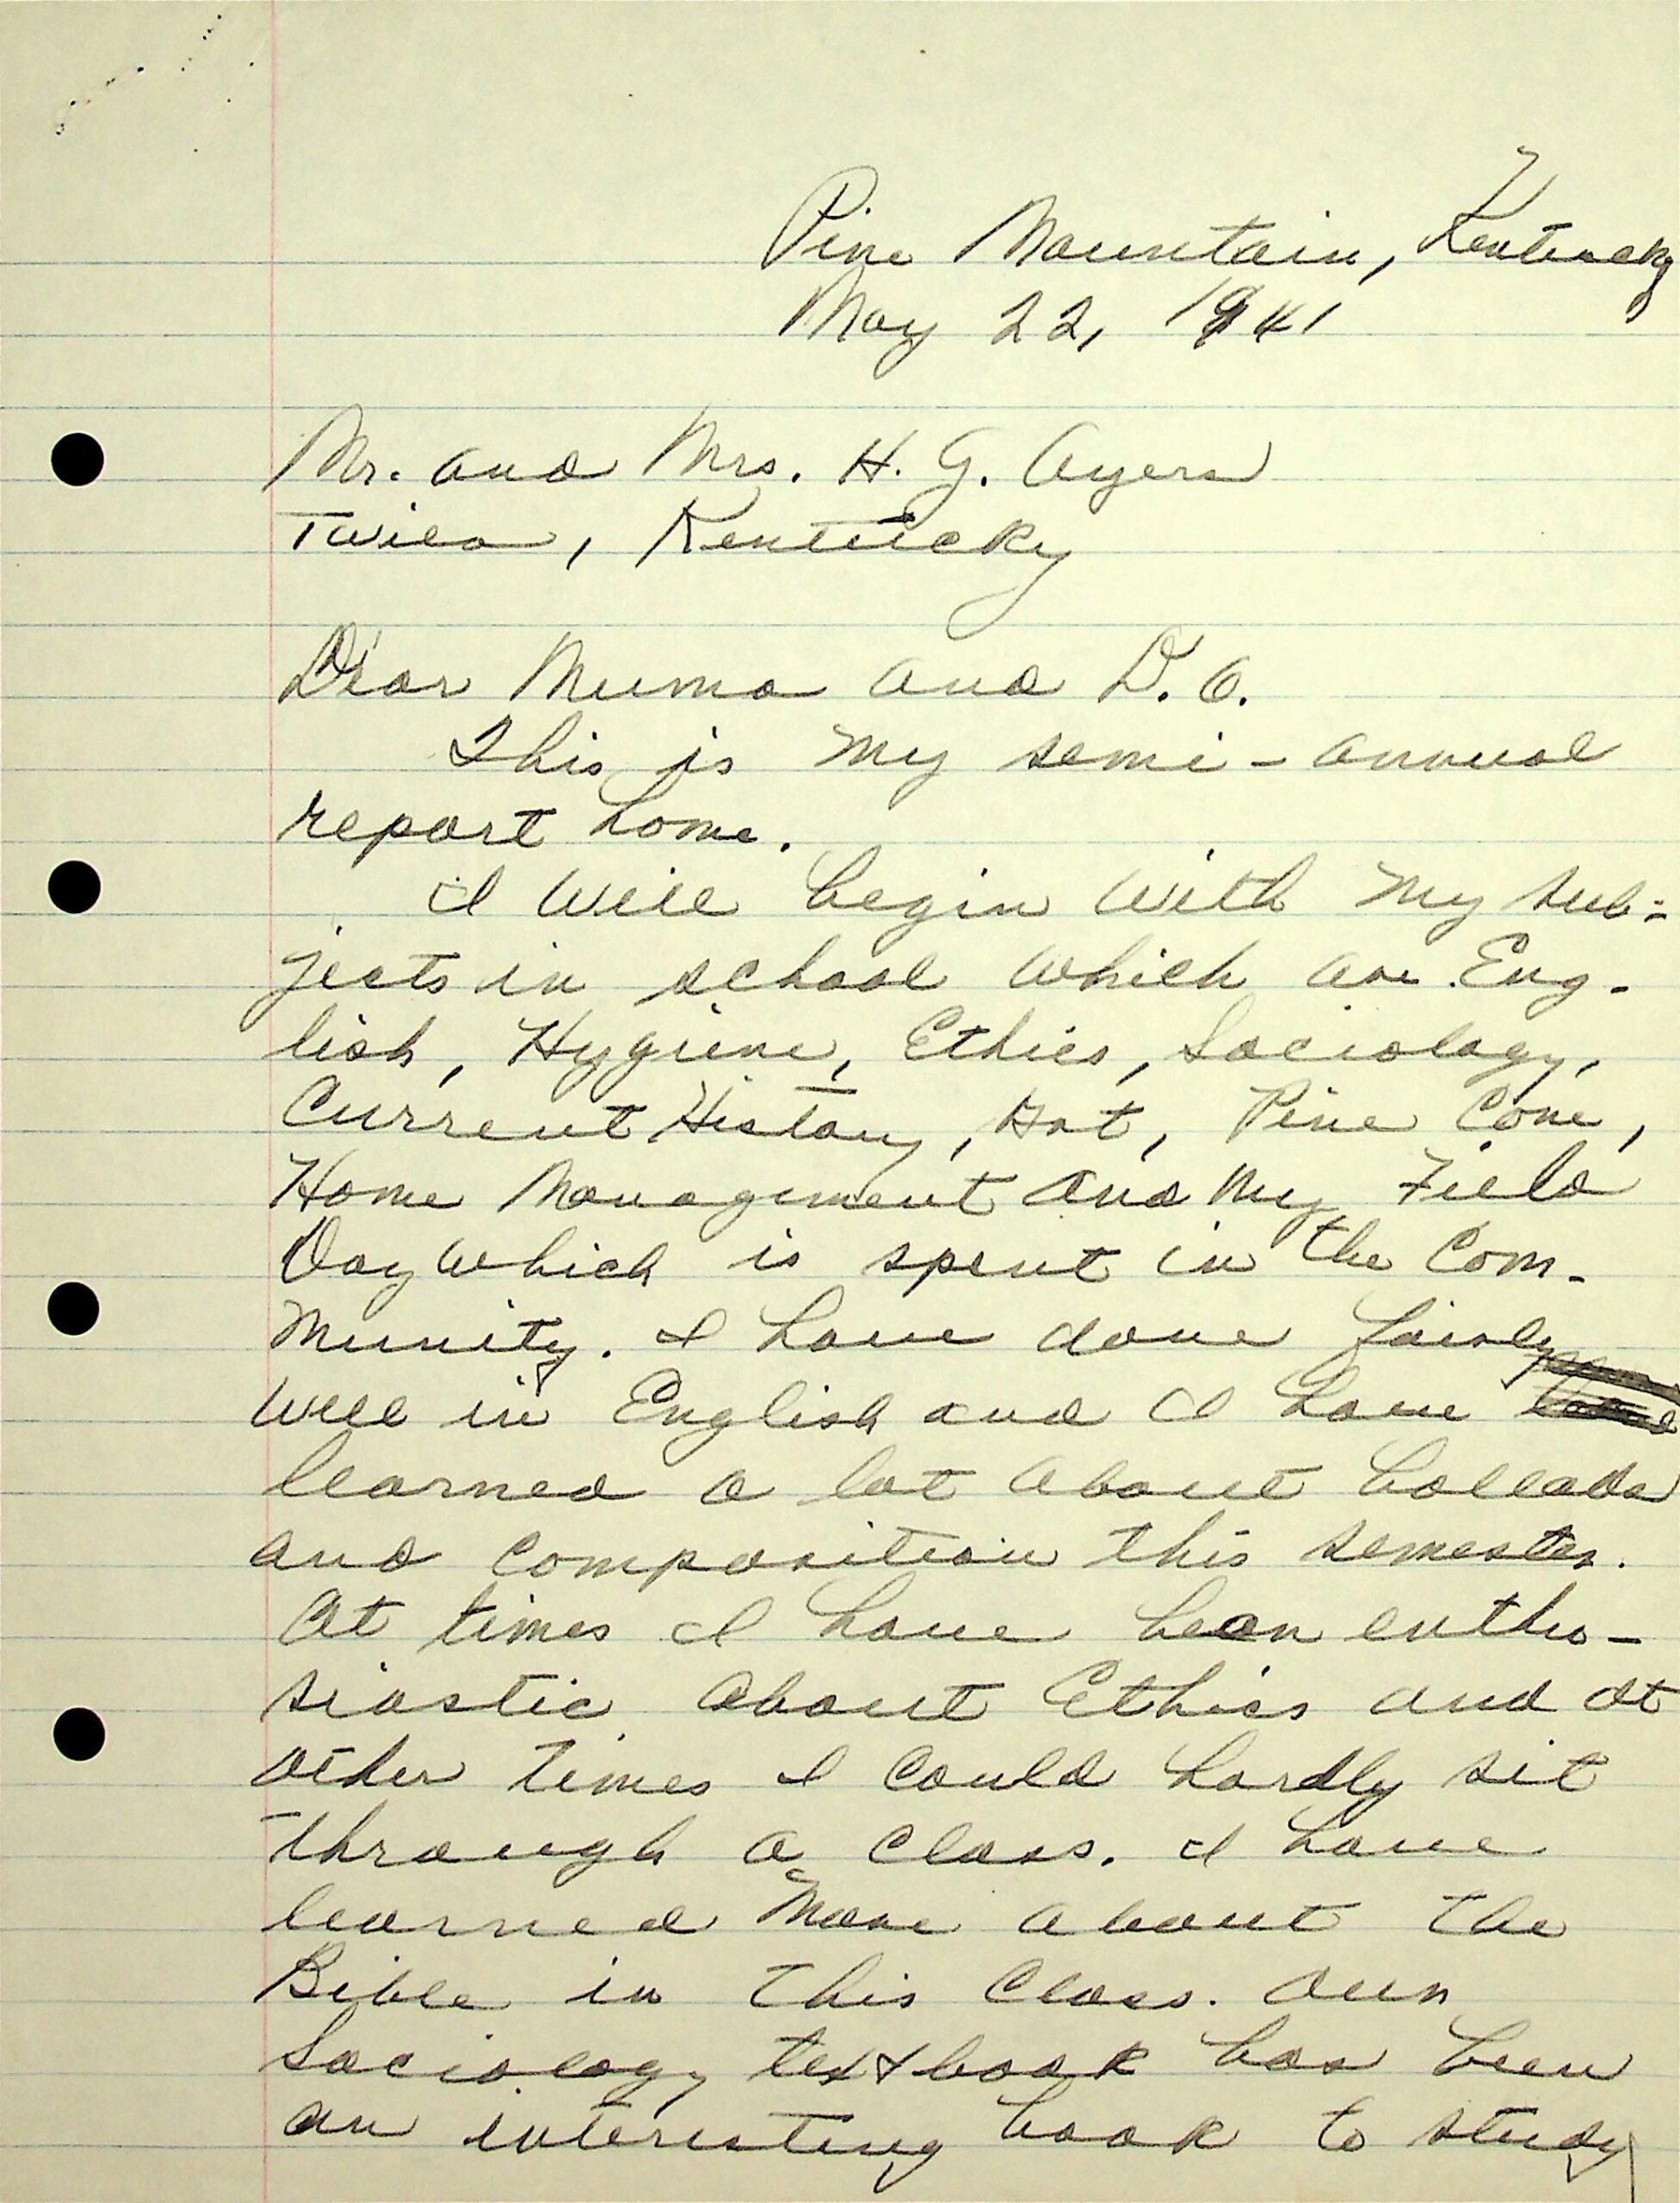 Pine Mountain, Kentucky
May 22, 1941
Mr. and Mrs. H. G. Ayers
Twila, Kentucky
Dear Muma and D. A.
This is my semi-annual
report home.
I will begin with my sub-
jects in school which are Eng-
lish, Hygiene, Ethics, Sociology,
Current History, Art, Pine Cone,
Home Management and my Field
Day which is spent in the Com-
munity. I have done fairly
well in English and I have
learned a lot about ballads
and composition this semester.
At times I have been enthu-
siastic about Ethics and at
other times I could hardly sit
through a class. I have
learned more about the
Bible in this class. Our
Sociology textbook has been
an interesting book to study